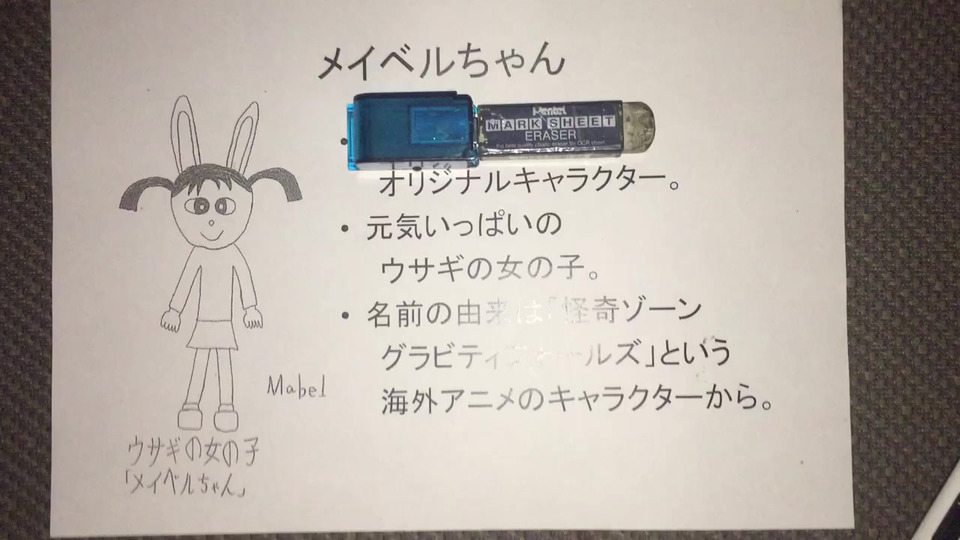 メイベルちゃん
Pentel
MARK SHEET
ERASER
the best quality plastic eraser for OCR sheet
オリジナルキャラクター。
・元気いっぱいの
ウサギの女の子。
・名前の由来は「怪奇ゾーン
グラビティフォールズ」という
海外アニメのキャラクターから。
Mabel
ウサギの女の子
「メイベルちゃん」